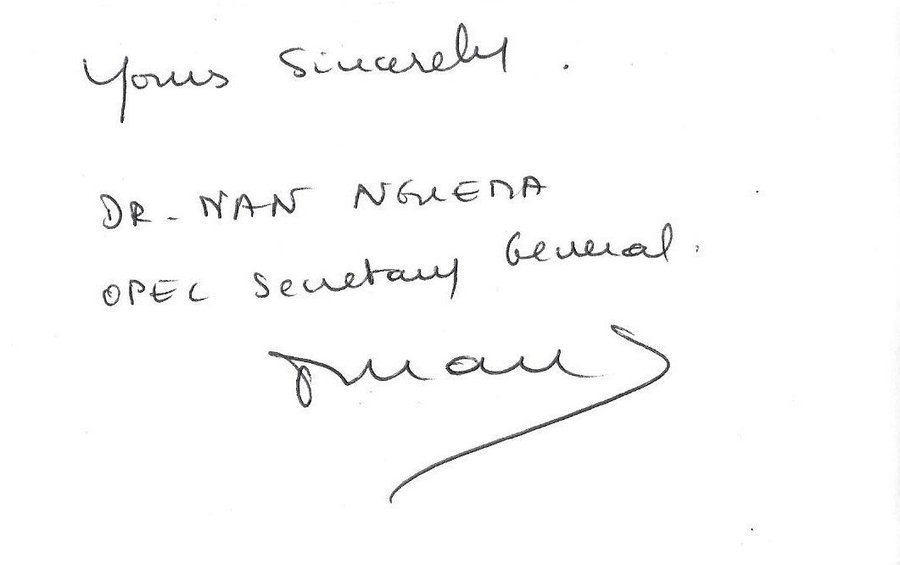 Yours Sincerely.
DR. NAN NGUEMA
OPEC Secretary General.